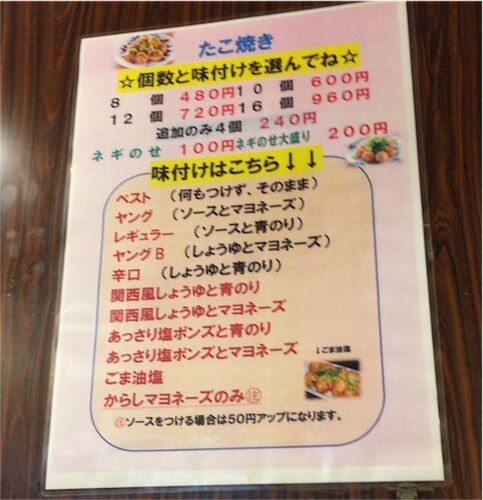 たこ焼き
☆個数と味付けを選んでね☆
8個 480円 10個 600円
12個 720円 16個 960円
追加のみ4個 240円
ネギのせ 100円 ネギのせ大盛り 200円
味付けはこちら↓↓
ベスト (何もつけず、そのまま)
ヤング (ソースとマヨネーズ)
レギュラー (ソースと青のり)
ヤングB (しょうゆとマヨネーズ)
辛口 (しょうゆと青のり)
関西風しょうゆと青のり
関西風しょうゆとマヨネーズ
あっさり塩ポンズと青のり
あっさり塩ポンズとマヨネーズ
↓ごま油塩
ごま油塩
からしマヨネーズのみ㊟
㊟ソースをつける場合は50円アップになります。